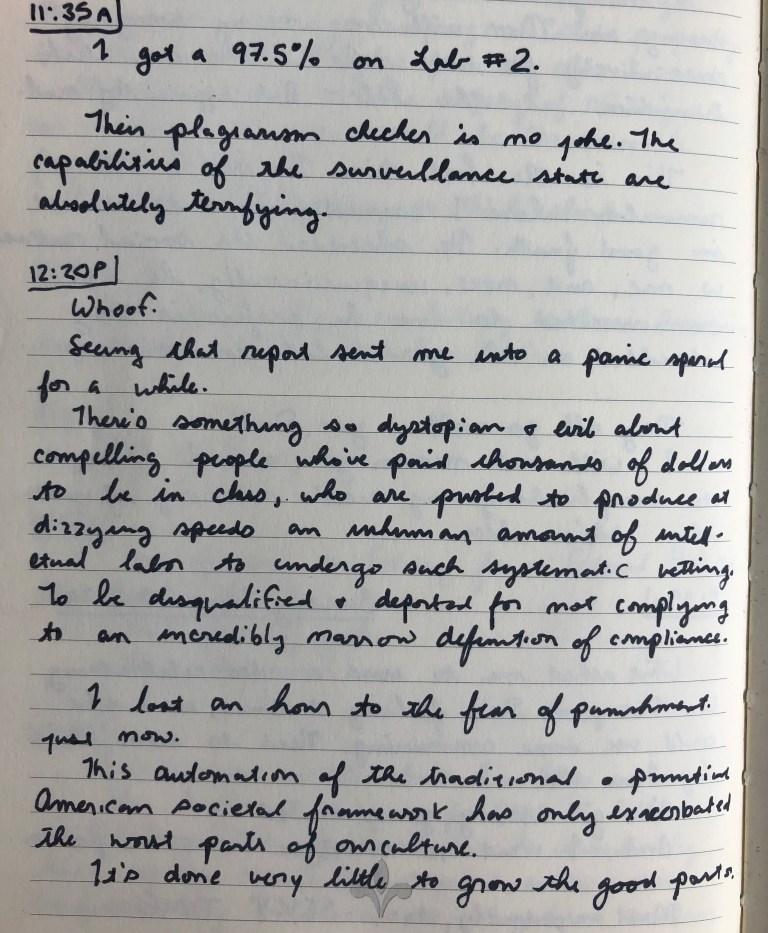 11:35A
I got a 97.5% on Lab #2.
Their plagiarism checker is no joke. The
capabilities of the surveillance state are
absolutely terrifying.
12:20P
Whoof.
Seeing that report sent me into a panic spiral
for a while.
There's something so dystopian & evil about
compelling people who've paid thousands of dollars
to be in class, who are pushed to produce at
dizzying speeds an inhuman amount of intell-
ectual labor to undergo such systematic vetting.
To be disqualified & deported for not complying
to an incredibly narrow definition of compliance.
I lost an hour to the fear of punishment.
just now.
This automation of the traditional & punitive
American societal framework has only exacerbated
the worst parts of our culture.
It's done very little to grow the good parts.